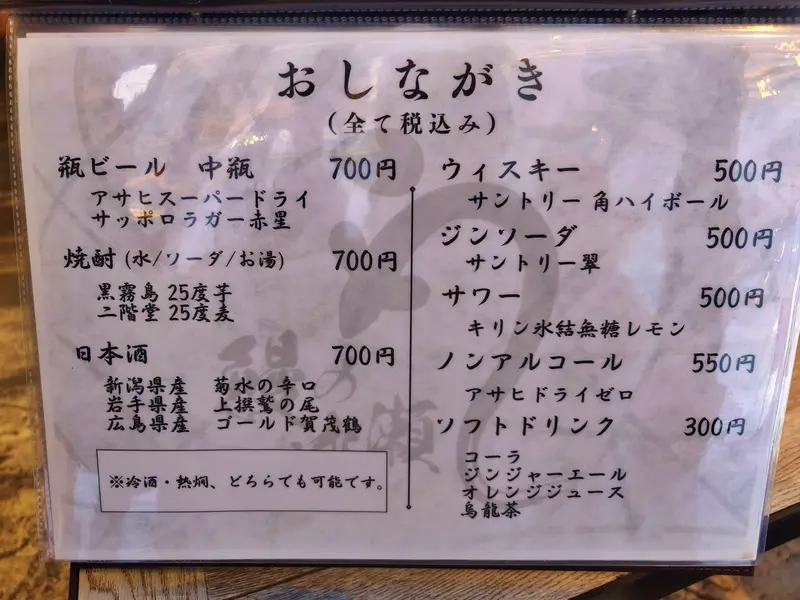 おしながき
(全て税込み)
瓶ビール 中瓶 700円
アサヒスーパードライ
サッポロラガー赤星
焼酎 (水/ソーダ/お湯) 700円
黒霧島 25度芋
二階堂 25度麦
日本酒 700円
新潟県産 菊水の辛口
岩手県産 上撰鷲の尾
広島県産 ゴールド賀茂鶴
※冷酒・熱燗、どちらでも可能です。
ウィスキー 500円
サントリー 角ハイボール
ジンソーダ 500円
サントリー翠
サワー 500円
キリン氷結無糖レモン
ノンアルコール 550円
アサヒドライゼロ
ソフトドリンク 300円
コーラ
ジンジャーエール
オレンジジュース
烏龍茶